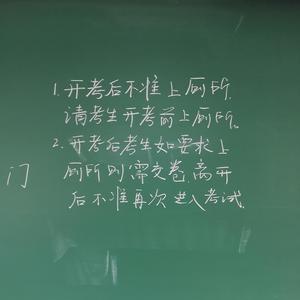 1. 开考后不准上厕所.
请考生开考前上厕所。
2. 开考后考生如要求上
厕所则需交卷,离开
后不准再次进入考试.
门